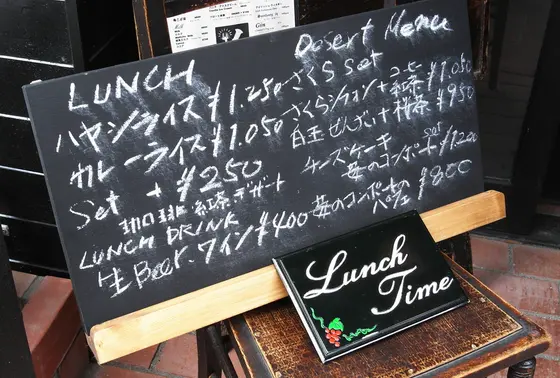 LUNCH
ハヤシライス ¥1.250
カレーライス ¥1.050
Set + ¥250
珈琲・紅茶・デザート
LUNCH DRINK
生Beer・ワイン ¥400
Desert Menu
さくら set
さくらシフォン+コーヒー 紅茶 ¥1.050
白玉ぜんざい+ ¥950
チーズケーキ
苺のコンポート set ¥1.200
苺のコンポートの
パフェ ¥800
Lunch
Time